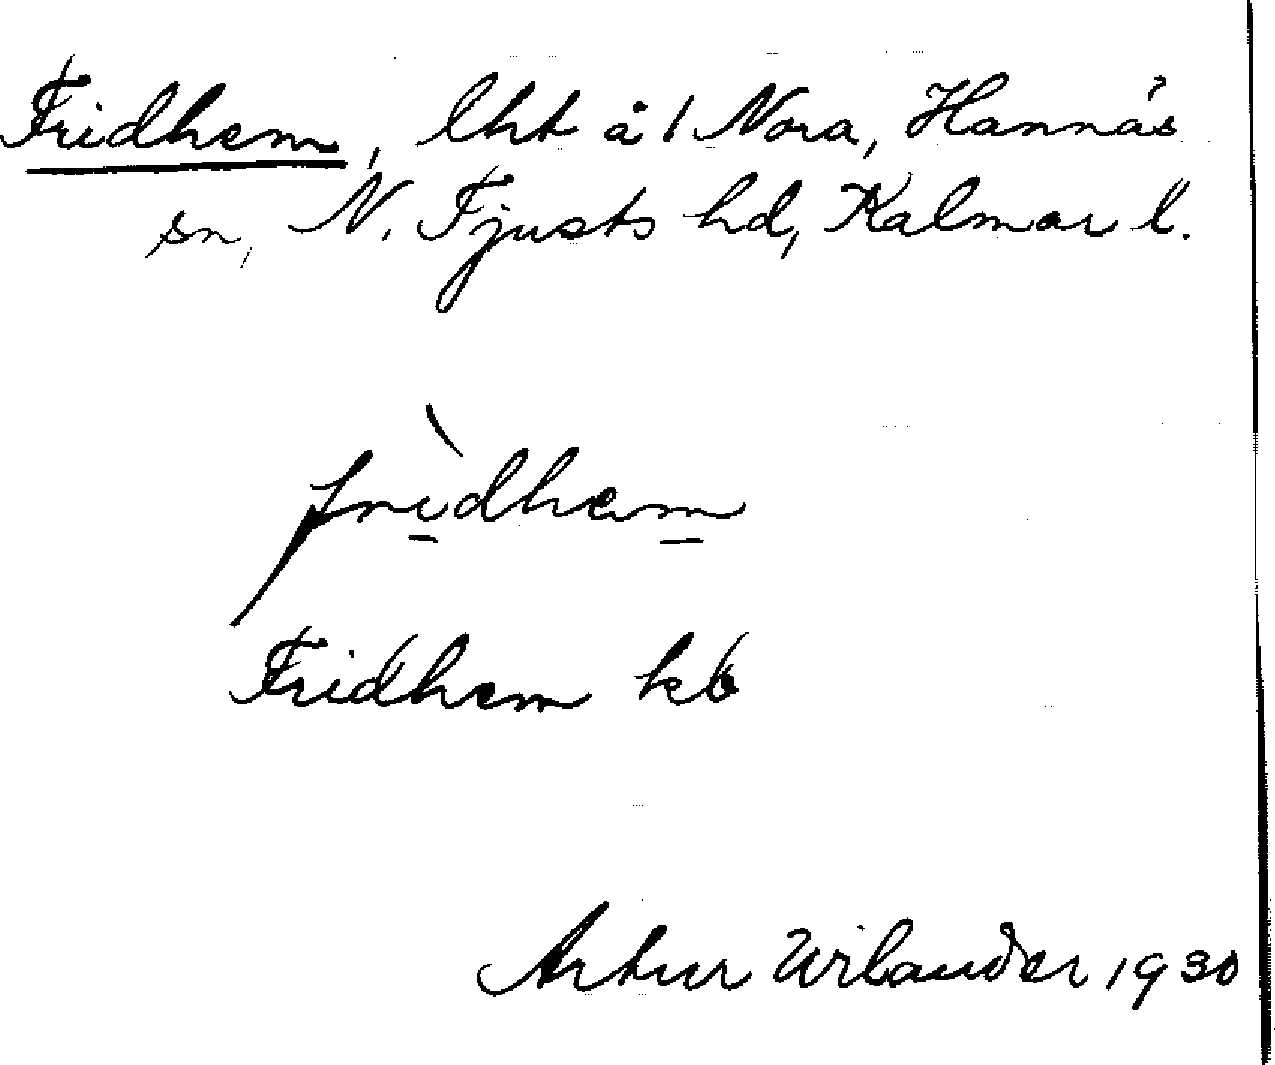 Fridhem, lht å 1 Nora, Hannäs
sn, N. Tjusts hd, Kalmar l.
fri̠dhem̠
Fridhem kb
Artur Wilander 1930